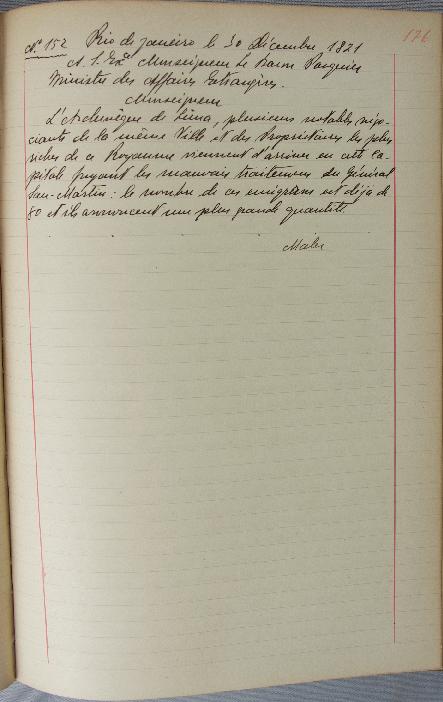 176
No 152 Rio de Janeiro le 30 Décembre 1821
A. S. Exce Monseigneur Le Baron Pasquier
Ministre des Affaires Etrangères.
Monseigneur
L'Archevêque de Lima, plusieurs notables négo-
ciants de la même Ville et des Propriétaires les plus
riches de ce Royaume viennent d'arriver en cette Ca-
pitale fuyant les mauvais traitemens du Général
San-Martin: le nombre de ces emigrans est déja de
80 et ils annoncent une plus grande quantité.
Maler